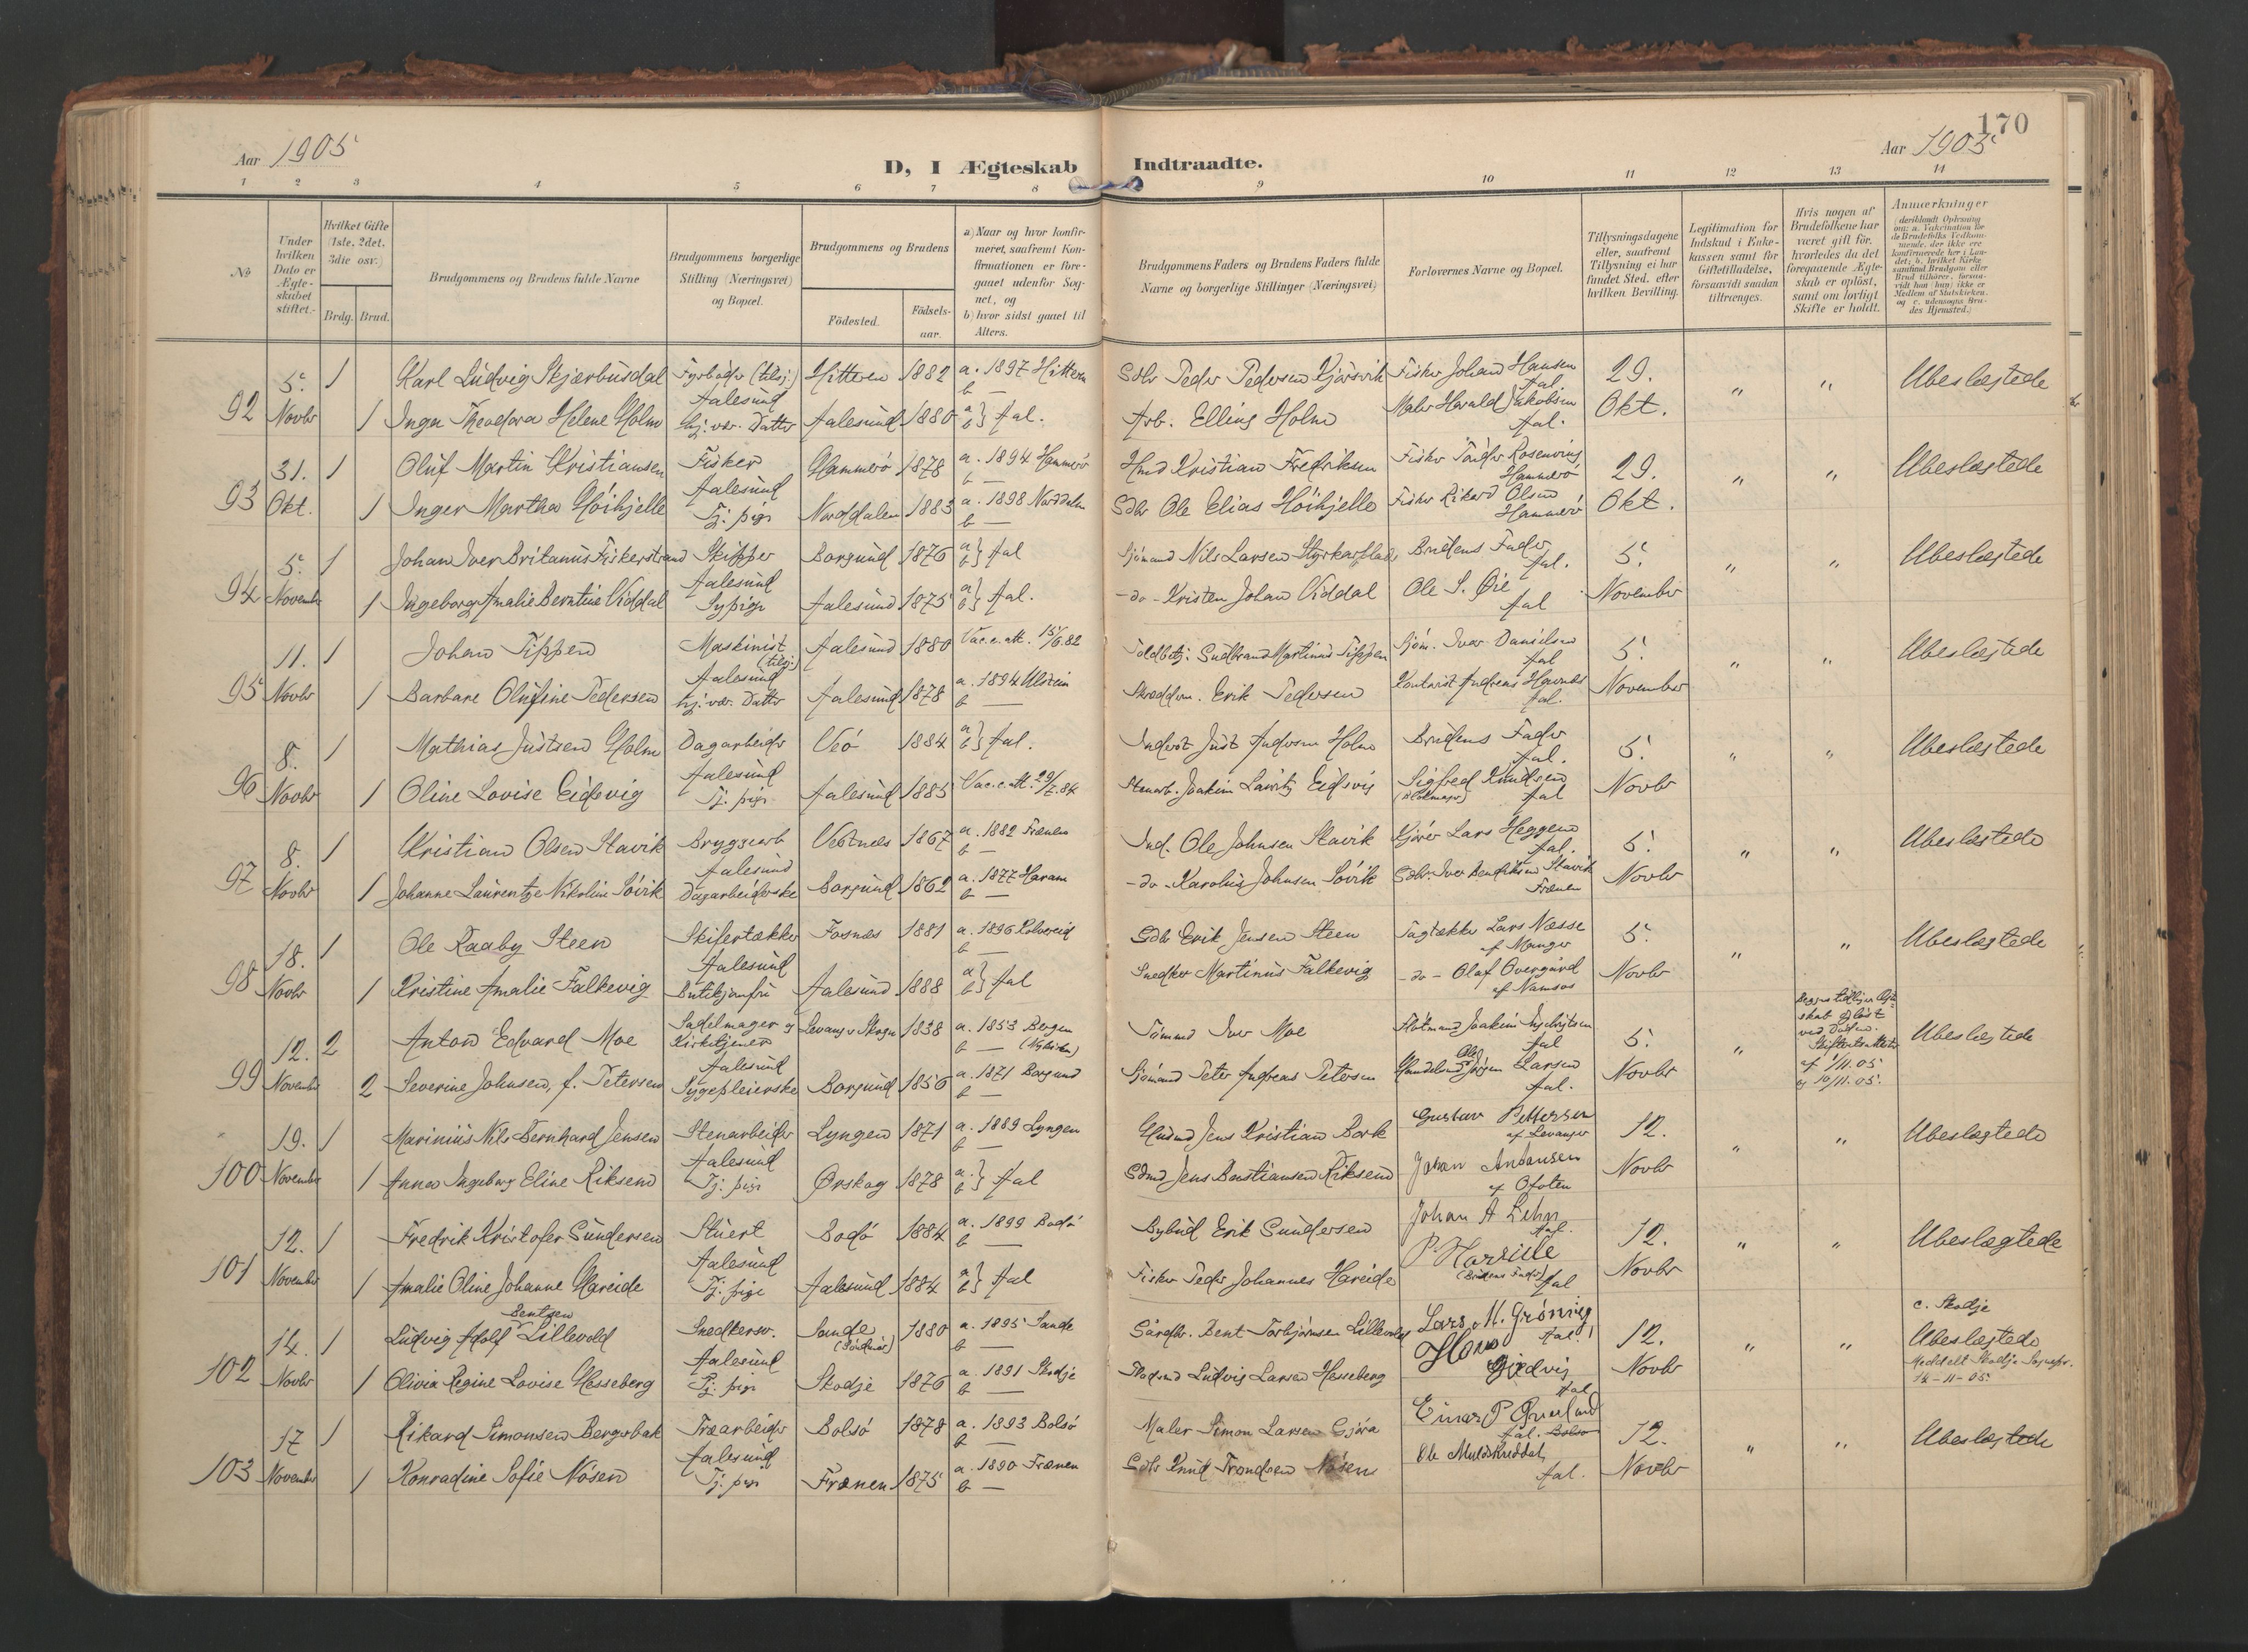 170
Aar 1905
Aar 1905
D, I Ægteskab Indtraadte.
1 2 3 4 5 6 7 8 9 10 11 12 13 14
No
Under hvilken Dato er Ægteskabet stiftet.
Hvilket Gifte (1ste, 2det, 3die osv.)
Brdg. Brud.
Brudgommens og Brudens fulde Navne
Brudgommens borgerlige Stilling (Næringsvei) og Bopæl.
Brudgommens og Brudens
Fødested.
Fødselsaar.
a) Naar og hvor konfirmeret, saafremt Konfirmationen er foregaaet udenfor Sognet, og
b) hvor sidst gaaet til Alters.
Brudgommens Faders og Brudens Faders fulde Navne og borgerlige Stillinger (Næringsvei)
Forlovernes Navne og Bopæl.
Tillysningsdagene eller, saafremt Tillysning ei har fundet Sted, efter hvilken Bevilling.
Legitimation for Indskud i Enkekassen samt for Giftetilladelse, forsaavidt saadan tiltrænges.
Hvis nogen af Brudefolkene har været gift før, hvorledes da det foregaaende Ægteskab er opløst, samt om lovligt Skifte er holdt.
Anmærkninger
92 5. Novbr 1 Karl Ludvig Skjærbusdal Fyrbøder (tilsj.) Aalesund Hitteren 1882 a. 1897 Hitteren b — Peder Pedersen Kjørsvik Fisker Johan Hansen Aal. 29. Okt. " " Ubeslægtede
1 Inga Theodora Helene Holm hj. vær. Datter Aalesund 1880 a b } Aal. Arb. Elling Holm Maler Harald Jakobsen Aal.
93 31. Okt. 1 Oluf Martin Kristiansen Fisker Aalesund Hammerø 1878 a. 1894 Hammerø b — Hmd Kristian Fredriksen Fisker Rosenving Hammerø 29. Okt. " " Ubeslægtede
1 Inger Martha Høihjelle Tj. pige Norddalen 1883 a. 1898 Norddalen b — Ole Elias Høihjelle Fisker Rikard Olsen Hammerø
94 5. November 1 Johan Iver Britanus Fiskerstrand Skipper Aalesund Borgund 1876 a b } Aal Sjømand Nils Larsen Brudens Fader Aal. 5. November " " Ubeslægtede
1 Ingeborg Amalie Berntine Viddal Sypige Aalesund 1875 a b } Aal. -do- Kristen Johan Viddal Ole S. Øie Aal
95 11. Novbr 1 Johan Tippen Maskinist (tilsj.) Aalesund Aalesund 1880 Vac. att. 15/6.82 Toldbetj. Gudbrand Martinus Tippen Sjøm. Iver Danielsen Aal 5. November " " Ubeslægtede
1 Barbare Olufine Pedersen hj. vær. Datter Aalesund 1878 a. 1894 Ulstein b — Skræddm. Erik Pedersen Kontorist Andreas Aal.
96 8. Novbr 1 Mathias Justsen Holm Dagarbeider Aalesund Veø 1884 a b } Aal. Inderst Just Andersen Holm Brudens Fader Aal. 5. Novbr " " Ubeslægtede
1 Oline Lovise Eidsvig Tj. pige Aalesund 1885 Vac. att. Stenarb. Joakim Lauritz Eidsvig Sigfred Knudsen Aal
97 8. Novbr 1 Kristian Olsen Stavik Bryggearb Aalesund Vestnes 1867 a. 1882 Frænen b — Ind. Ole Johnsen Stavik Kjører Lars Heggem Aal. 5. Novbr " " Ubeslægtede
1 Johanne Laurentze Nikoline Søvik Dagarbeiderske Borgund 1862 a. 1877 Haram b — -do- Karolus Johnsen Søvik Iver Bendiksen Stavik Frænen
98 18. Novbr 1 Ole Raaby Steen Skifertækker Aalesund Fosnæs 1881 a. 1896 Kolvereid b — Erik Jensen Steen Tagtækker Lars Næsse af Manger 5. Novbr " " Ubeslægtede
1 Kristine Amalie Falkevig Butikjomfru Aalesund 1888 a b } Aal Snedker Martinus Falkevig -do- Olaf Overgård af Namsos
99 12. November 2 Anton Edvard Moe Sadelmager og Kirketjener Aalesund Levanger Skogn 1838 a. 1853 Bergen b — Iver Moe Aal 5. Novbr " Begges tidligere Ægteskab opløst ved Døden. Skifteretsattester af 1/11.05 og 10/11.05. Ubeslægtede
2 Severine Johnsen, f. Petersen Sygepleierske Borgund 1856 a. 1871 Borgund b — Sjømand Peter Andreas Petersen Larsen Aal.
100 19. November 1 Marinius Nils Bernhard Jensen Stenarbeider Aalesund Lyngen 1871 a. 1889 Lyngen b — Jens Kristian Bork Gustav Pettersen af Levanger 12. Novbr " " Ubeslægtede
1 Anna Ingeborg Eline Riksem Tj. pige Ørskog 1878 a. b } Aal Jens Bastiansen Riksem Johan Antonsen af Ofoten
101 12. November 1 Fredrik Kristofer Sundersen Stuert Aalesund Bodø 1884 a. 1899 Bodø b — Bybud Erik Sundersen Johan A Lehn Aal. 12. Novbr " " Ubeslægtede
1 Amalie Oline Johanne Hareide Tj. pige Aalesund 1884 a b } Aal Fisker Peder Johannes Hareide P. Hareide (Brudens Fader) Aal
102 14. Novbr 1 Ludvig Adolf Bentsen Lillevold Snedkersv. Aalesund Sande (Søndmør) 1880 a. 1895 Sande b — Gårdbr. Bent Torbjørnsen Lillevold Lars M. Grønvig Aal. 12. Novbr " " c. Skodje Ubeslægtede Meddelt Skodje Sognepr. 14-11-05
1 Olivia Regine Lovise Hesseberg Tj. pige Skodje 1876 a. 1891 Skodje b — Ludvig Larsen Hesseberg Hans Gjedvig Aal
103 17 November 1 Rikard Simonsen Bergsbak Træarbeider Aalesund Bolsø 1878 a. 1893 Bolsø b — Maler Simon Larsen Gjøra Einar P. Aal. 12. Novbr " " Ubeslægtede
1 Konradine Sofie Nøsen Tj. pige Frænen 1875 a. 1890 Frænen b — Knud Trondsen Nøsen Ole Muldskreddal Aal.